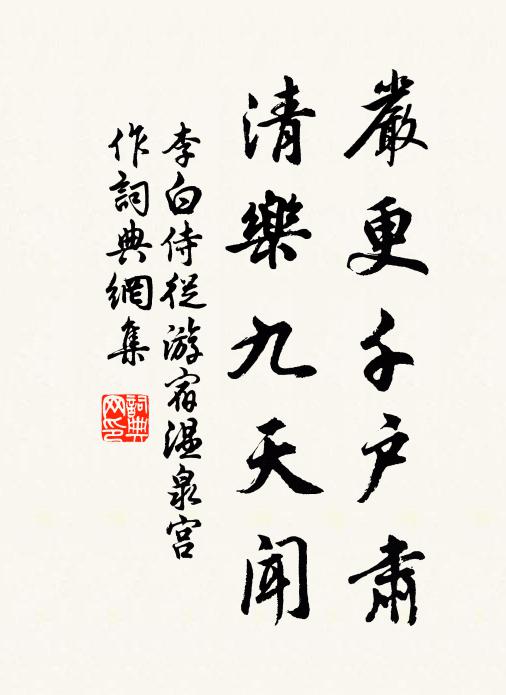 嚴更千户肅
清樂九天聞
李白侍從游宿溫泉宮
作詞典網集
詞典网印